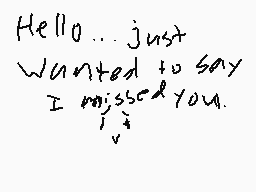 Hello... just
wanted to say
I missed you.